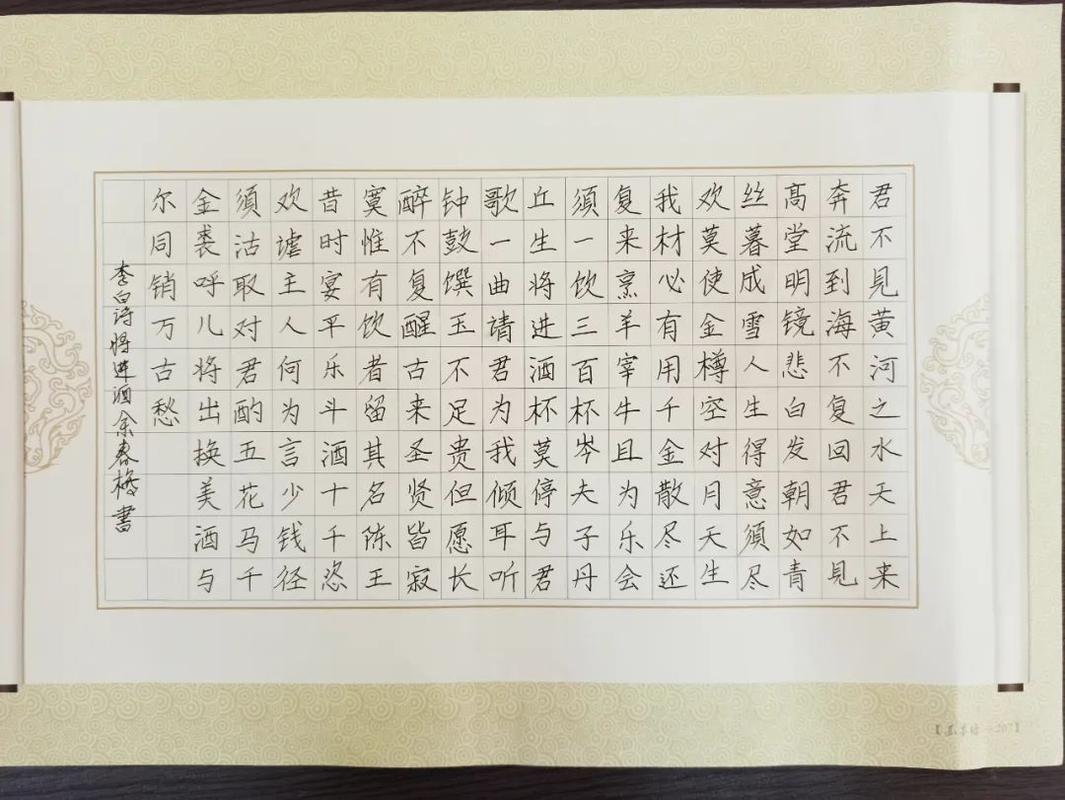 君不見黄河之水天上来
奔流到海不复回君不見
高堂明镜悲白发朝如青
丝暮成雪人生得意須尽
欢莫使金樽空对月天生
我材必有用千金散尽还
复来烹羊宰牛且为乐会
須一饮三百杯岑夫子丹
丘生将进酒杯莫停与君
歌一曲请君为我倾耳听
钟鼓馔玉不足贵但愿长
醉不复醒古来圣贤皆寂
寞惟有饮者留其名陈王
昔时宴平乐斗酒十千恣
欢谑主人何为言少钱径
須沽取对君酌五花马千
金裘呼儿将出换美酒与
尔同销万古愁
李白诗将进酒余春梅書